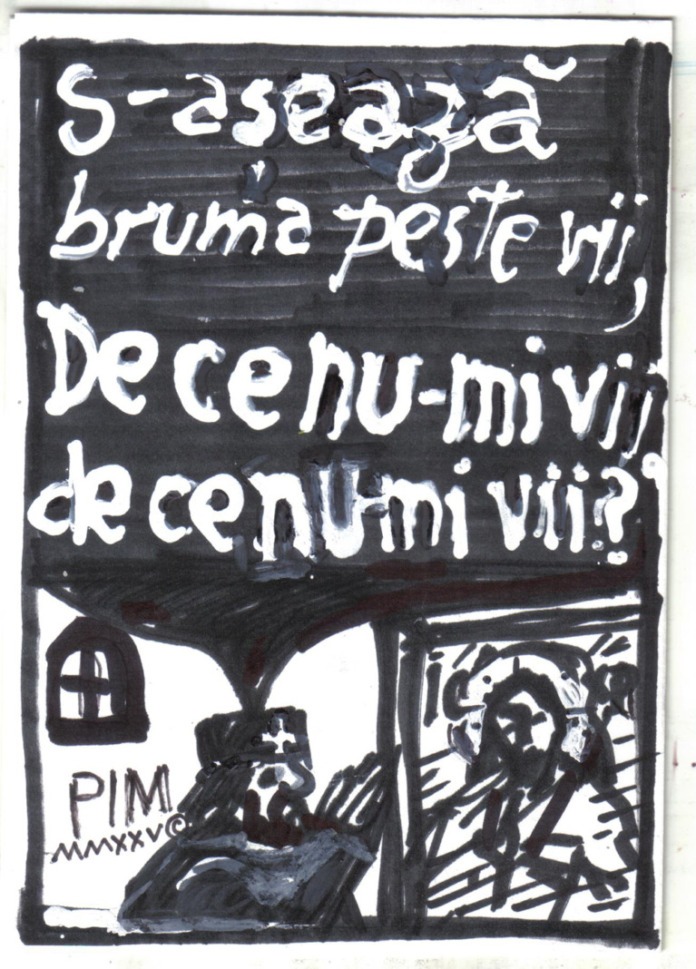 S-asează
bruma peste vii,
De ce nu-mi vij
de ce nu-mi vii?
PIM
MMXXV©
IC